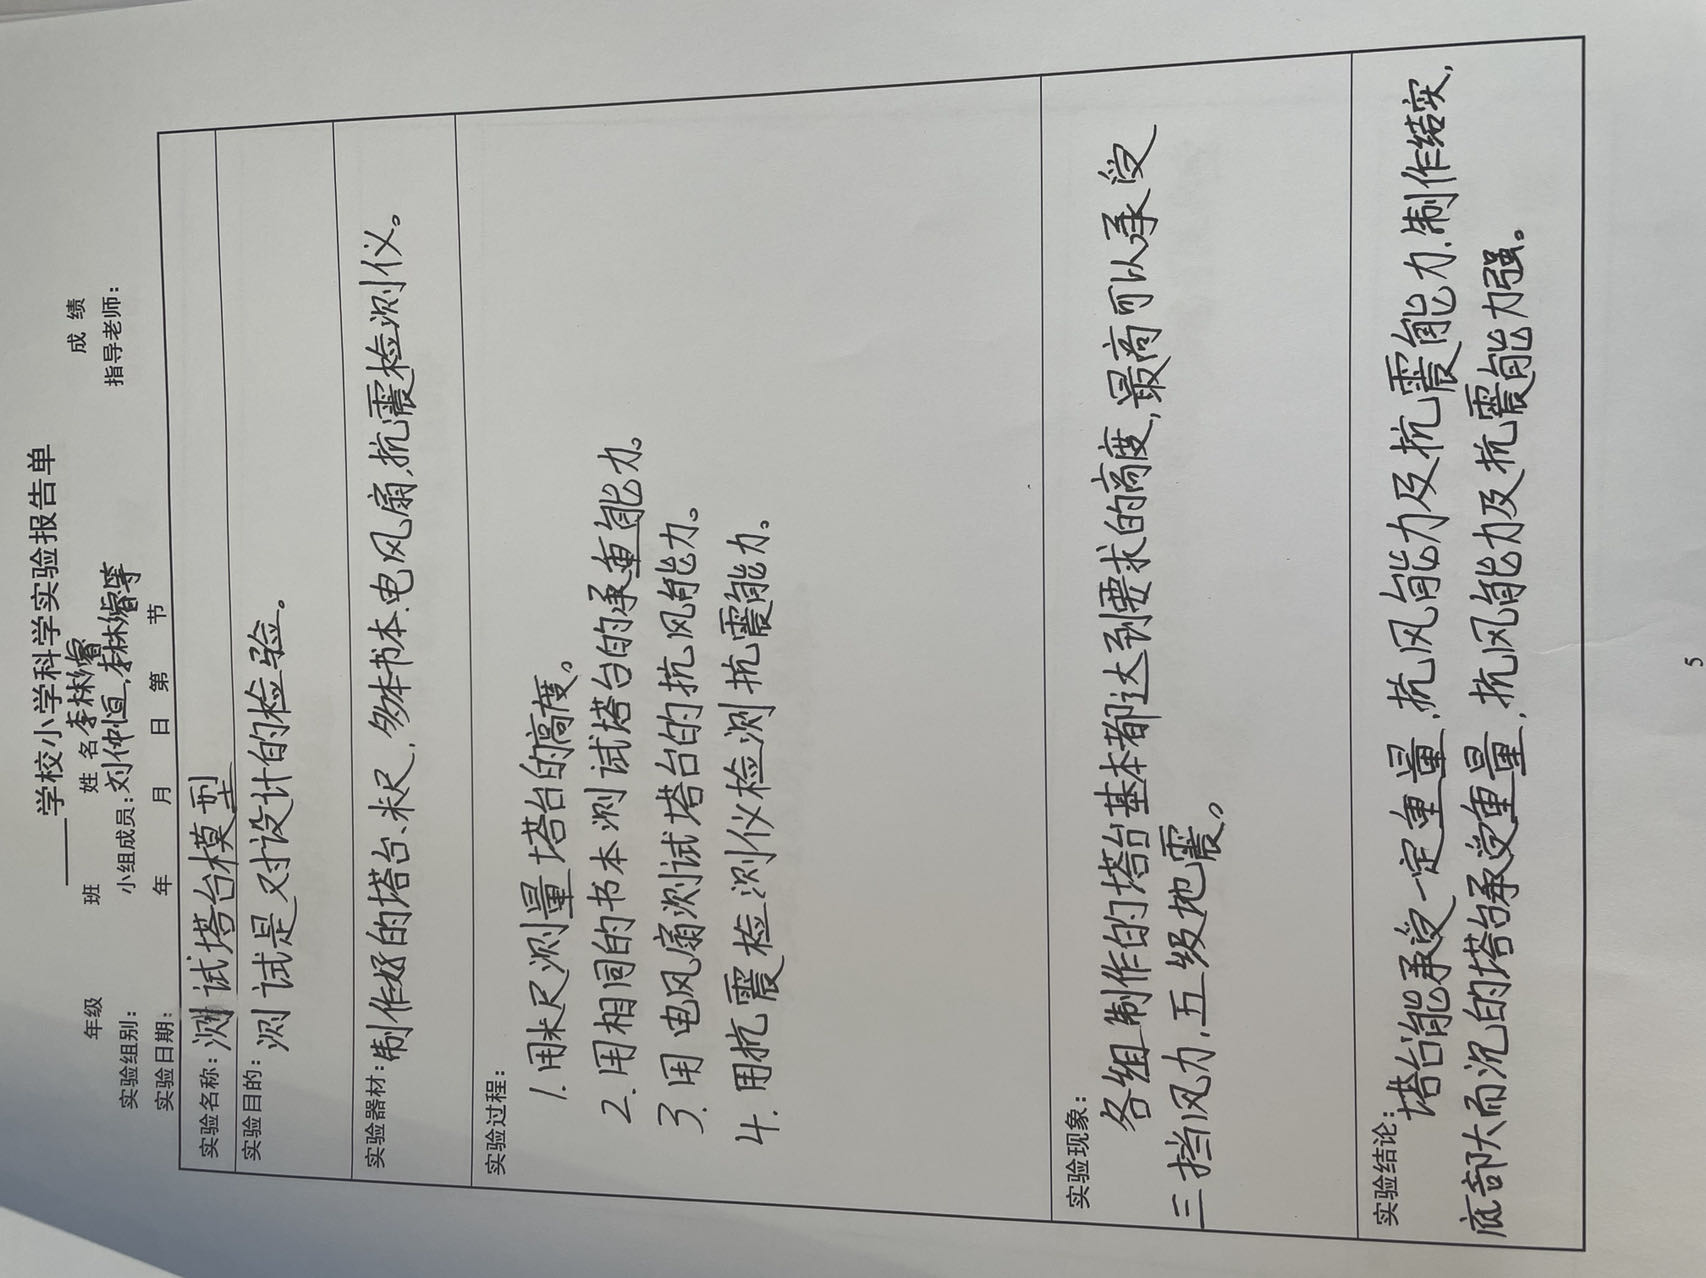 学校小学科学实验报告单
年级 班 姓名李林睿 成绩
实验组别: 小组成员:刘仲恒,李林睿等 指导老师:
实验日期: 年 月 日 第 节
实验名称:测试塔台模型
实验目的:测试是对设计的检验。
实验器材:制作好的塔台、米尺,多本书本、电风扇,抗震检测仪。
实验过程:
1.用米尺测量塔台的高度。
2.用相同的书本测试塔台的承重能力。
3.用电风扇测试塔台的抗风能力。
4.用抗震检测仪检测抗震能力。
实验现象:
各组制作的塔台基本都达到要求的高度,最高可以承受
三挡风力,五级地震。
实验结论:
塔台能承受一定重量,抗风能力及抗震能力.制作结实,
底部大而沉的塔台承受重量,抗风能力及抗震能力强。
5